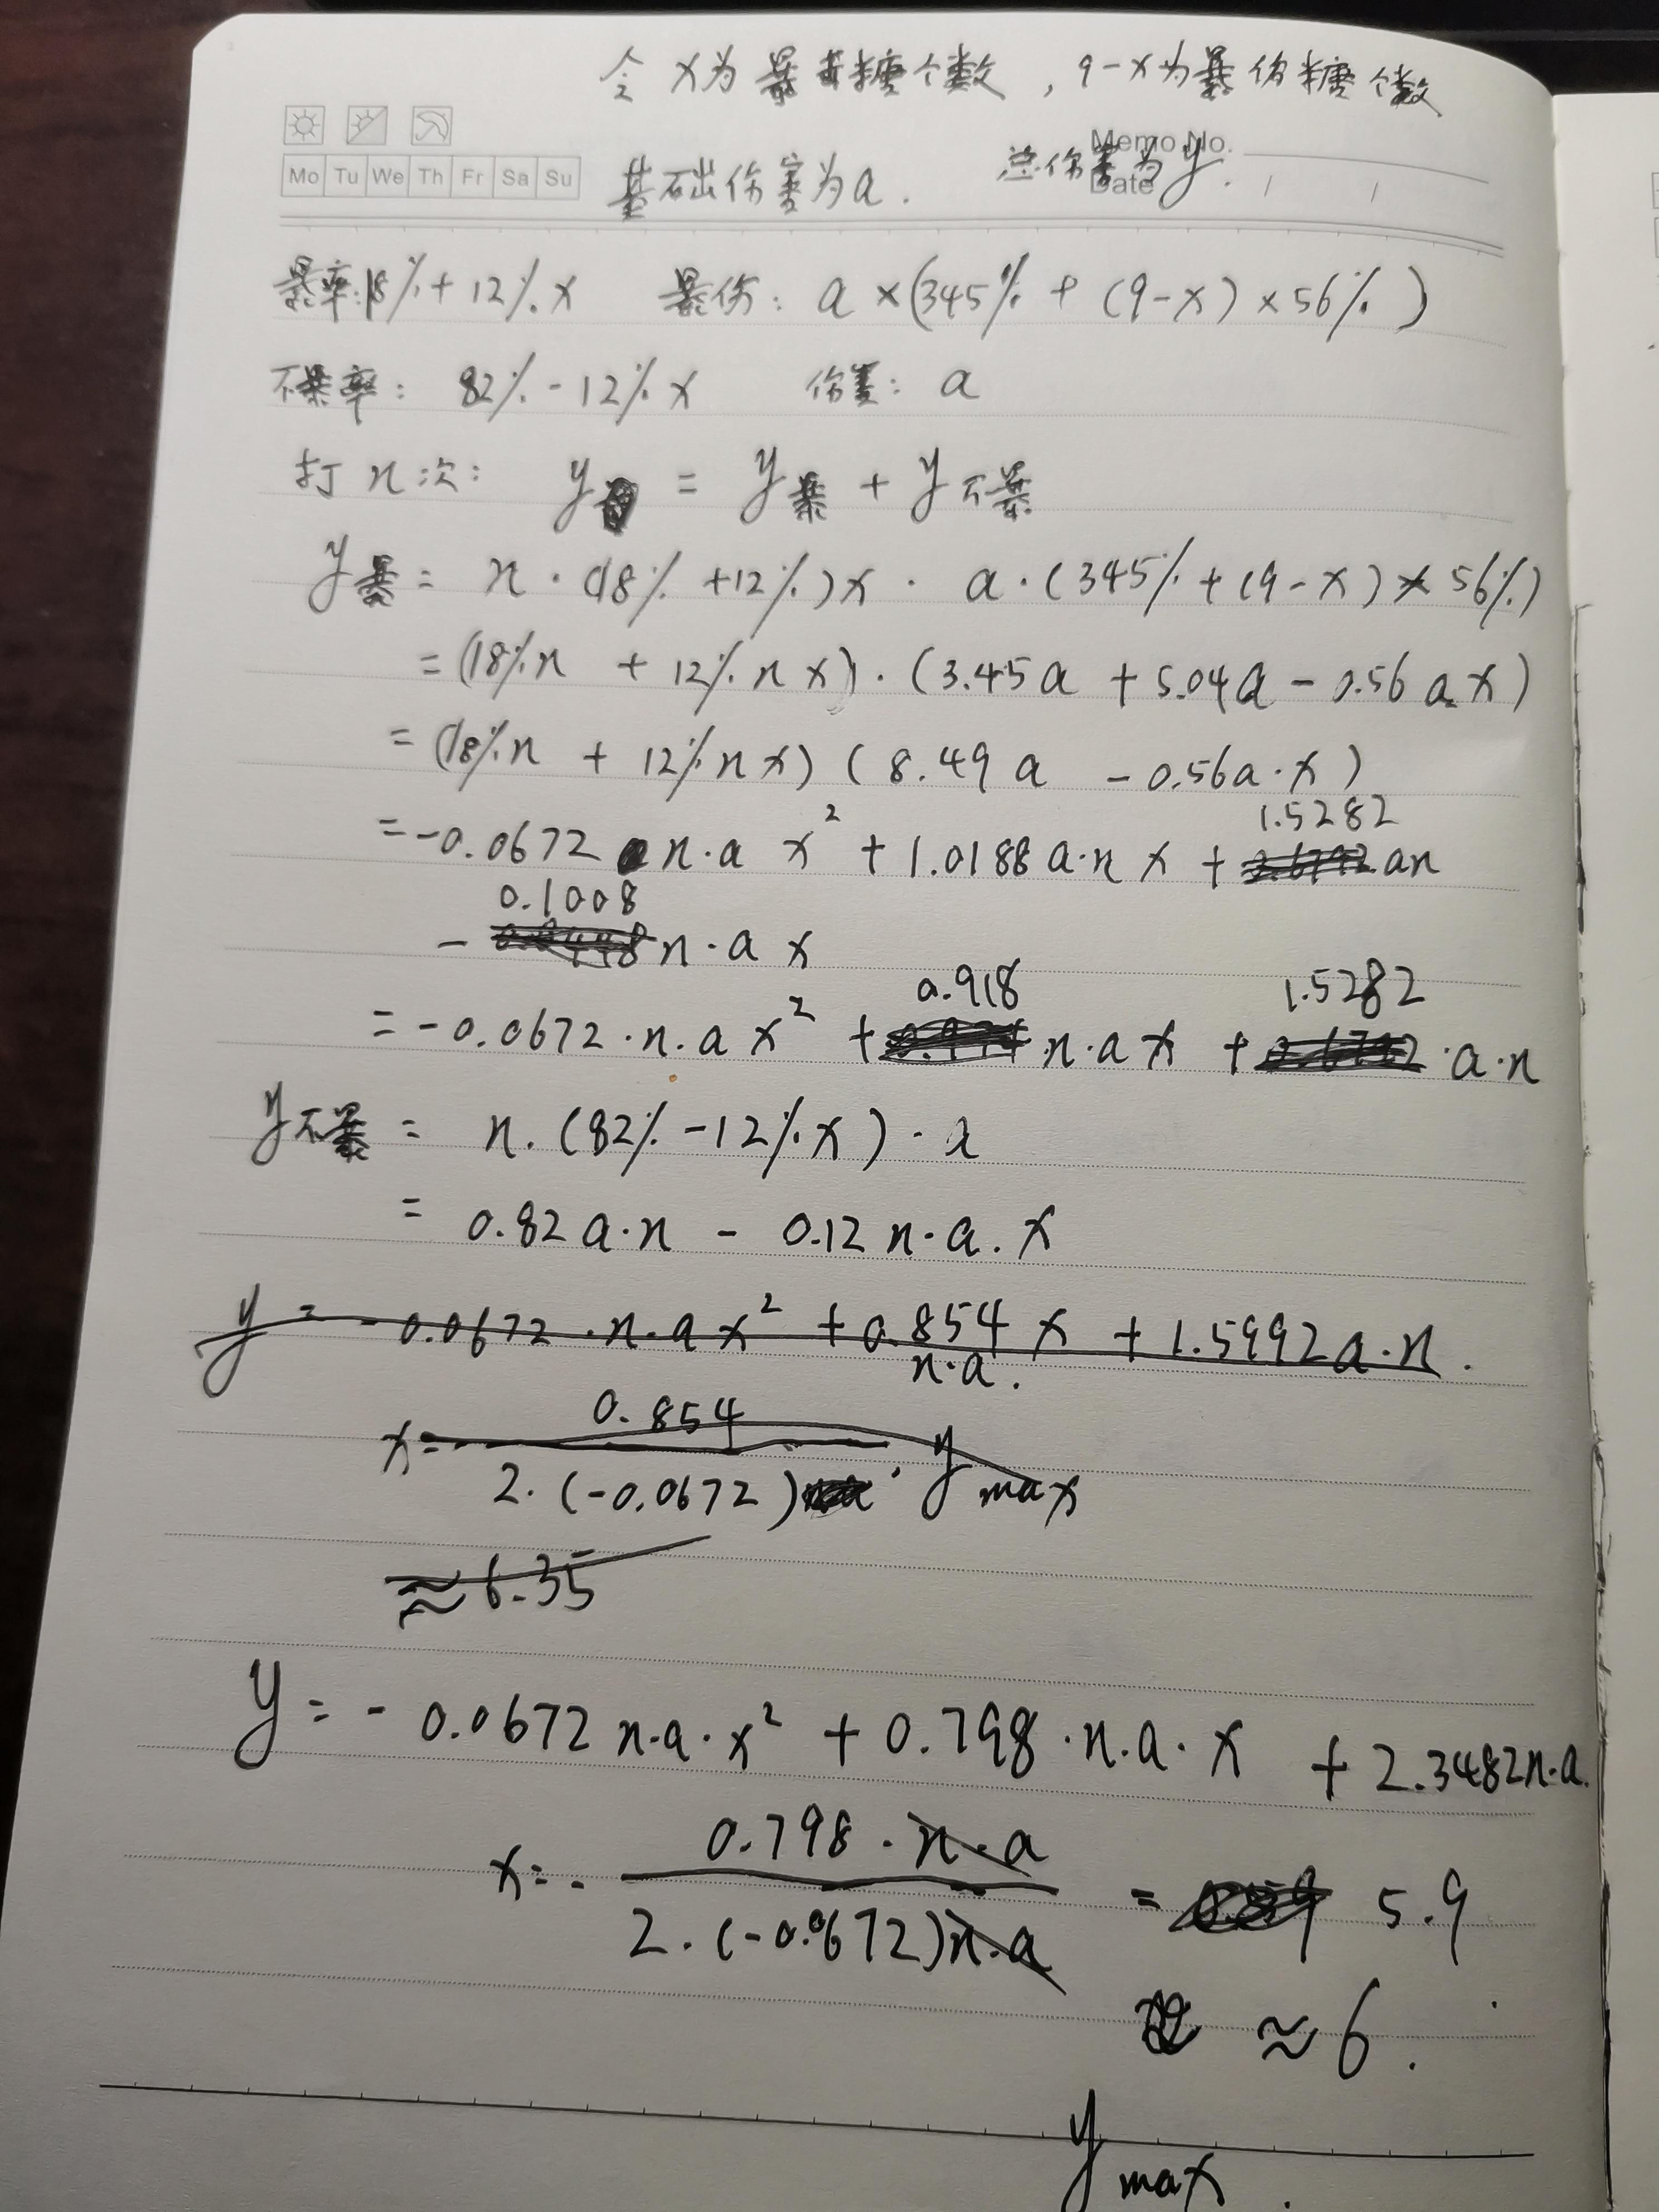 令 x为暴击糖个数，9-x为暴伤糖个数
Memo No.
Mo Tu We Th Fr Sa Su
基础伤害为a. 总伤害为y.
Date / /
暴率:18%+12%x 暴伤: a×(345%+(9-x)×56%)
不暴率: 82%-12%x 伤害: a
打n次: y = y暴 + y不暴
y暴 = n·(18%+12%)x · a·(345%+(9-x)×56%)
=(18%n + 12%nx)·(3.45a + 5.04a - 0.56ax)
=(18%n + 12%nx)(8.49a - 0.56a·x)
1.5282
=-0.0672 n·a x² + 1.0188a·n x + an
0.1008
- n·a x
0.918 1.5282
= -0.0672·n·a x² + n·a x + ·a·n
y不暴 = n·(82%-12%x)·a
= 0.82a·n - 0.12n·a.x
y = -0.0672·n·a x² + 0.854 x + 1.5992a·n.
n·a.
x=-0.854/2·(-0.0672) · y max
≈6.35
y = -0.0672n·a·x² + 0.798·n·a·x + 2.3482n·a.
x=-0.798·n·a/2·(-0.0672)n·a = 5.9
≈6.
y max.